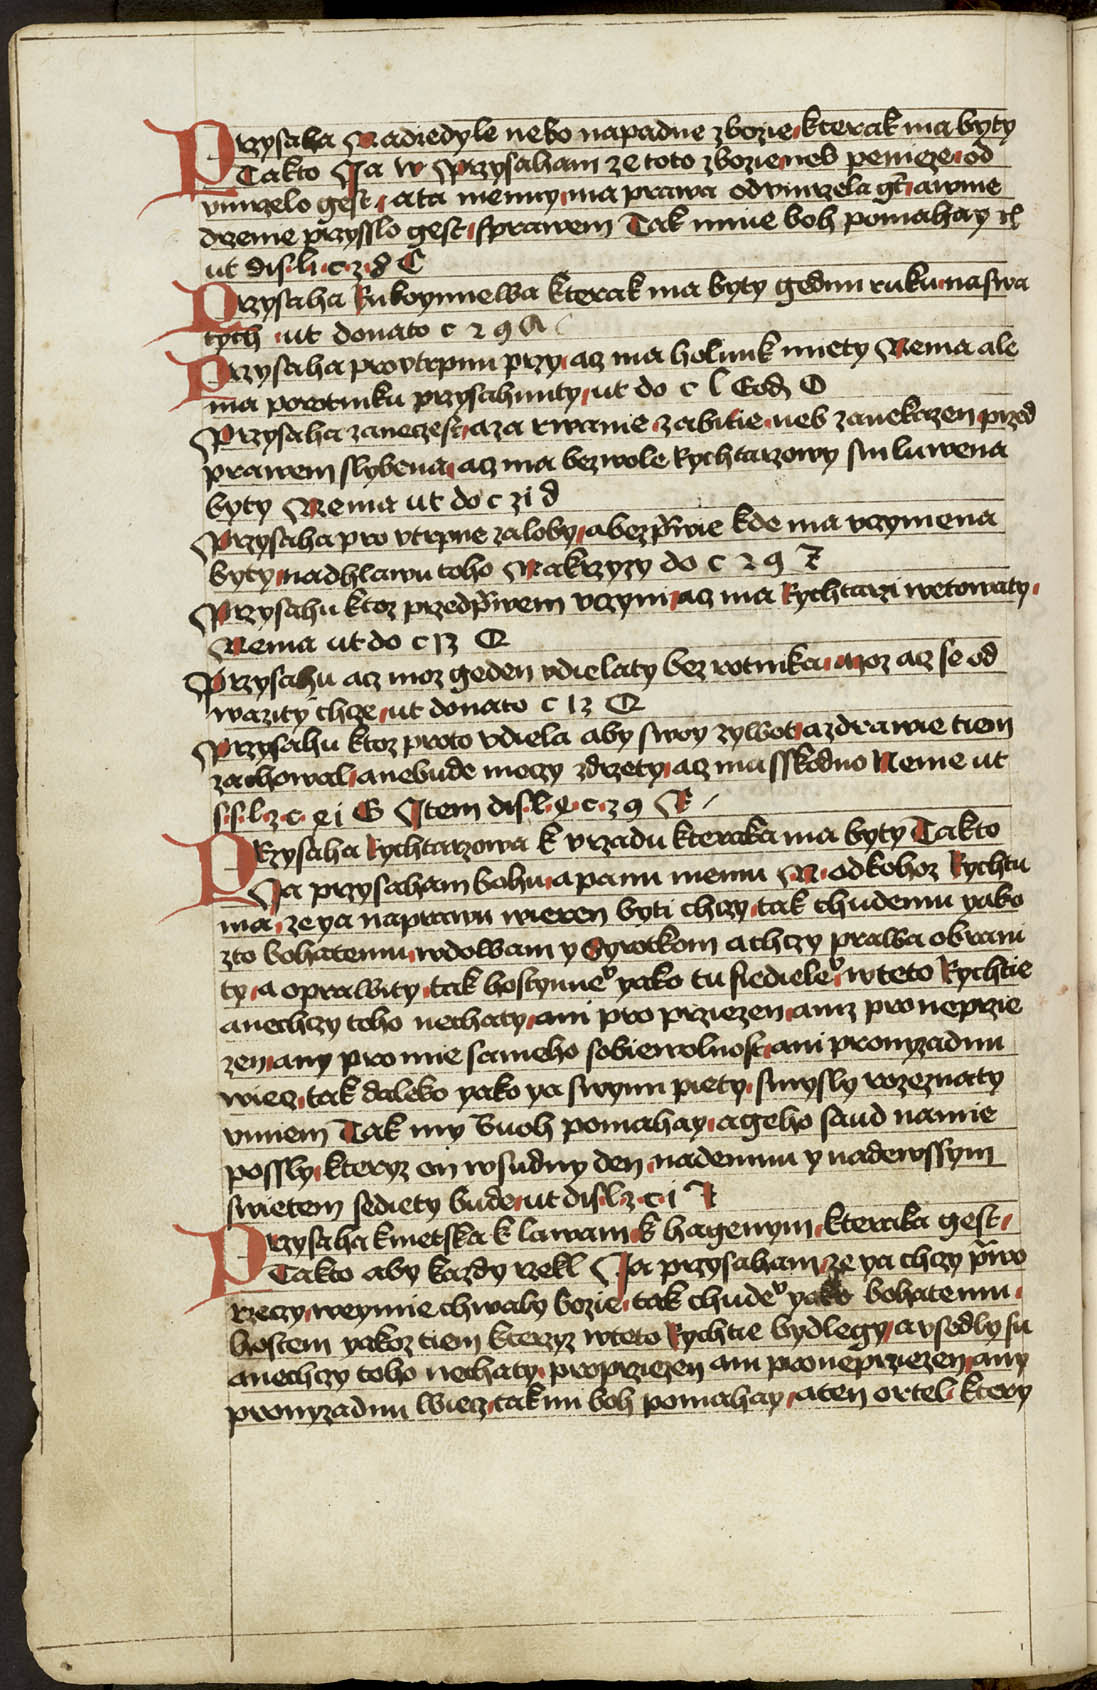 Przysaha Nadiedyle nebo napadne zbozie kterak ma byty
Takto Ja w Przysaham ze toto zbozie neb penieze od
vmrzelo gest a ta menny ma prawa odvmrzela gt a wme
drzenie przysslo gest sprawem Tak mnie boh pomahay
ut dis li c z d C
Przysaha Rukoymiewa kterak ma byty gednu ruku na swa
tych ut donato c 29 A
Przysaha pro vtrpnu przy acz ma holomk miety Nema ale
ma porotniku przysahnuty ut do c l O
Przysaha za neczest a za rwanie zabitie neb za nekazen przed
prawem slybena acz ma bez wole Rychtarzowy smluwena
byty Nema ut do c zi d
Przysaha pro vtrpne zaloby a bezprwie kde ma vczymena
byty nad hlawu toho Nakrzyzy do c 29
Przysahu ktoz przed prwem vczym acz ma Rychtarzi wetowaty
Nema ut do c
Przysahu acz moz geden vdielaty bez rotnika moz acz se od
wazity chcze ut donato c
Przysahu ktoz proto vdiela aby swoy zywot a zdrawie tiem
zachowal a nebude moczy zdrzety acz mu sskodno Neme ut
s s l z c G Item dis l c z 9
Przysaha Rychtarzowa k vrzadu kteraka ma byty Takto
Ja przysaham bohu a panu memu N od kohoz Rychtu
ma ze ya naprawu wieren byti chczy tak chudemu yako
zto bohatemu wdowam y Syrotkom a chczy prawa obrani
ty a oprawity tak hostynne yako tu siediele w teto Rychtie
a nechczy toho nechaty ani pro prziezen aniz pro neprzie
zen any pro mie sameho sobiewolnost ani pro nyzadnu
wiecz tak daleko yako ya swymi piety smysly rozeznaty
vmiem Tak my Buoh pomahay a geho saud namie
possly kteryz on w sudny den nademnu y nadewssym
swietem sediety bude ut dis l z c i
Przysaha kmetska k lawam k hagenym kteraka gest
Takto aby kazdy rzekl Ja przysaham ze ya chczy prwo
rzeczy weymie chwaly bozie tak chude yako bohatemu
hostem yakoz tiem kteryz w teto Rychtie bydlegy a vsedly su
a nechczy toho nechaty pro prziezen ani pro neprziezen any
pro nyzadnu wiecz tak mi boh pomahay a ten ortel ktery